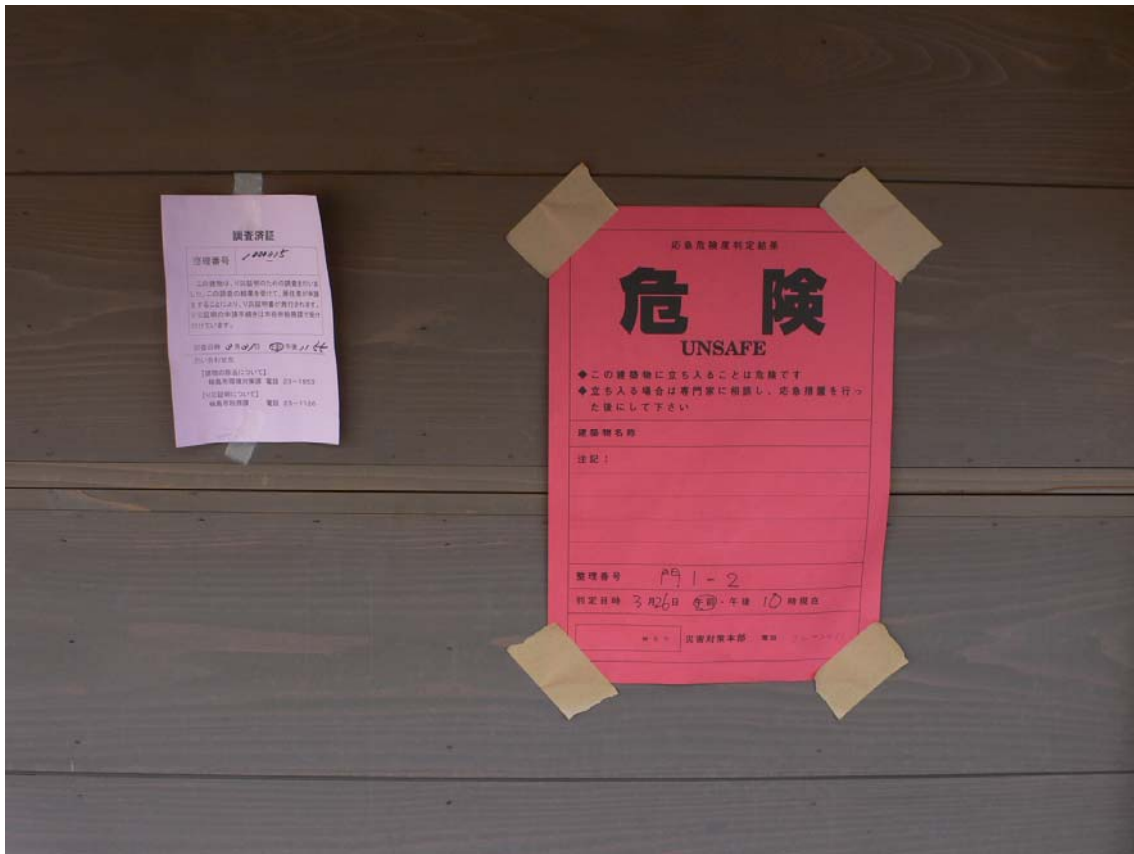 調査済証
整理番号
この建物は、り災証明のための調査を行いま
した。この調査の結果を受けて、居住者が申請
をすることにより、り災証明書が発行されます。
り災証明の申請手続きは市役所税務課で受け
付けています。
調査日時 月 日 午前 午後
問い合わせ先
輪島市環境対策課 電話 23-1853
【り災証明について】
輪島市税務課 電話 23-1126
応急危険度判定結果
危 険
UNSAFE
◆この建築物に立ち入ることは危険です
◆立ち入る場合は専門家に相談し、応急措置を行っ
た後にして下さい
建築物名称
注記：
整理番号 門1-2
判定日時 3月26日 午前・午後 10時現在
災害対策本部 電話